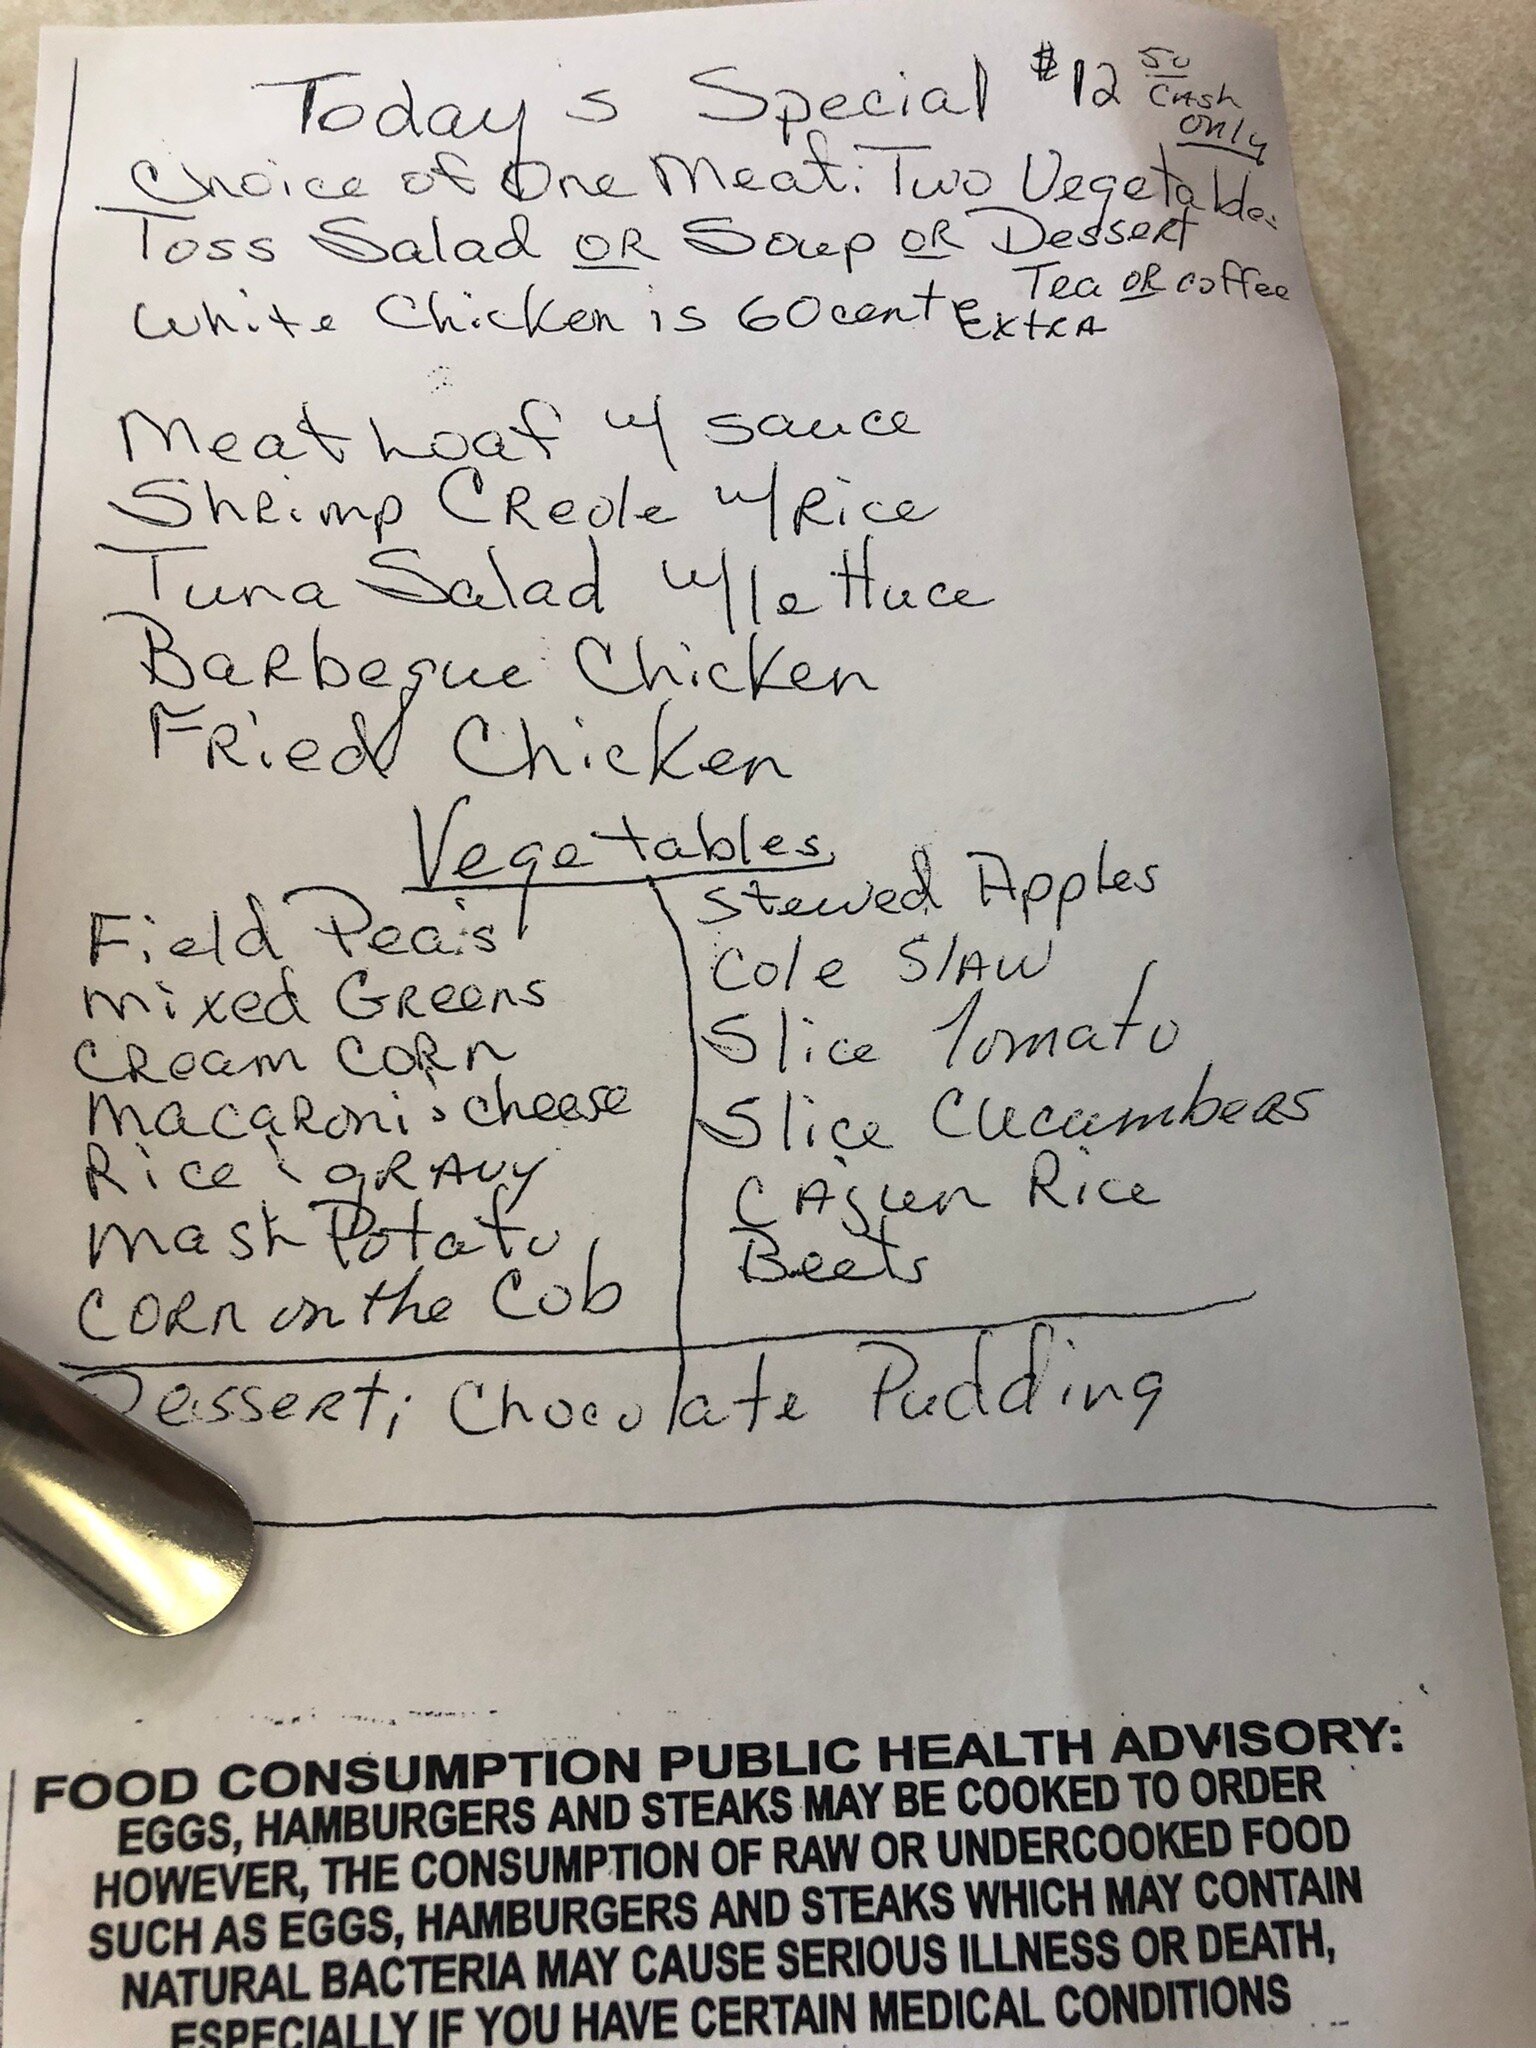 Today's Special $12 50 Cash Only
Choice of One Meat: Two Vegetables
Toss Salad OR Soup OR Dessert
Tea OR coffee
White Chicken is 60 cents EXTRA
Meat Loaf w/ sauce
Shrimp Creole w/Rice
Tuna Salad w/lettuce
Barbeque Chicken
Fried Chicken
Vegetables
Field Pea's
Mixed Greens
Cream Corn
Macaroni & cheese
Rice & gravy
Mash Potato
Corn on the Cob
Stewed Apples
Cole Slaw
Slice Tomato
Slice Cucumbers
Cajun Rice
Beets
Dessert; Chocolate Pudding
FOOD CONSUMPTION PUBLIC HEALTH ADVISORY:
EGGS, HAMBURGERS AND STEAKS MAY BE COOKED TO ORDER
HOWEVER, THE CONSUMPTION OF RAW OR UNDERCOOKED FOOD
SUCH AS EGGS, HAMBURGERS AND STEAKS WHICH MAY CONTAIN
NATURAL BACTERIA MAY CAUSE SERIOUS ILLNESS OR DEATH,
ESPECIALLY IF YOU HAVE CERTAIN MEDICAL CONDITIONS